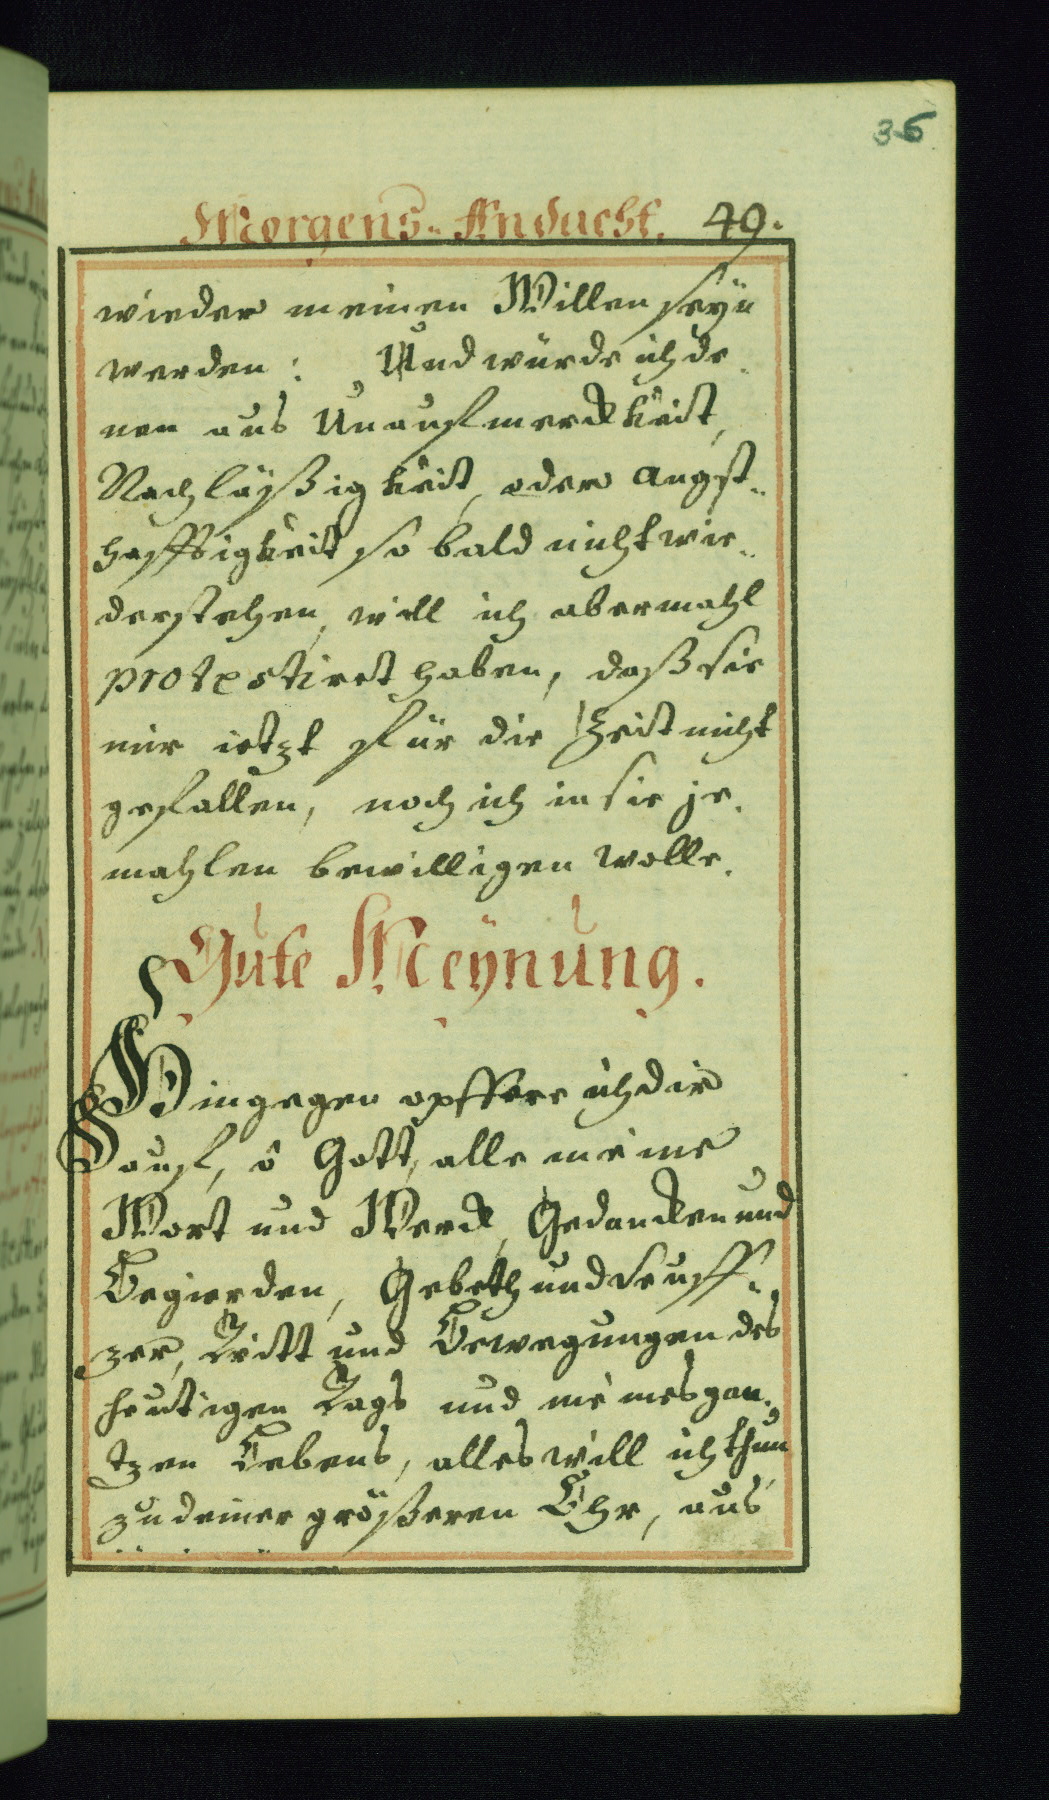 35
Morgens-Andacht. 49.
wieder meinen Willen seyn
werden: Und würde ich de-
nen aus Unaufmerckkeit,
Nachläßigkeit, oder Angst-
hafftigkeit so bald nicht wie-
derstehen, will ich abermahl
protestiret haben, daß sie
mir ietzt für die Zeit nicht
gefallen, noch ich in sie je-
mahlen bewilligen wolle.
Gute Meynung.
Hingegen opffere ich dir
auf, ô Gott, alle meine
Wort und Werck, Gedancken und
Begierden, Gebeth und Seuff-
zer, Tritt und Bewegungen des
heutigen Tags und meines gan-
tzen Lebens, alles will ich thun
zu deiner größeren Ehr, aus